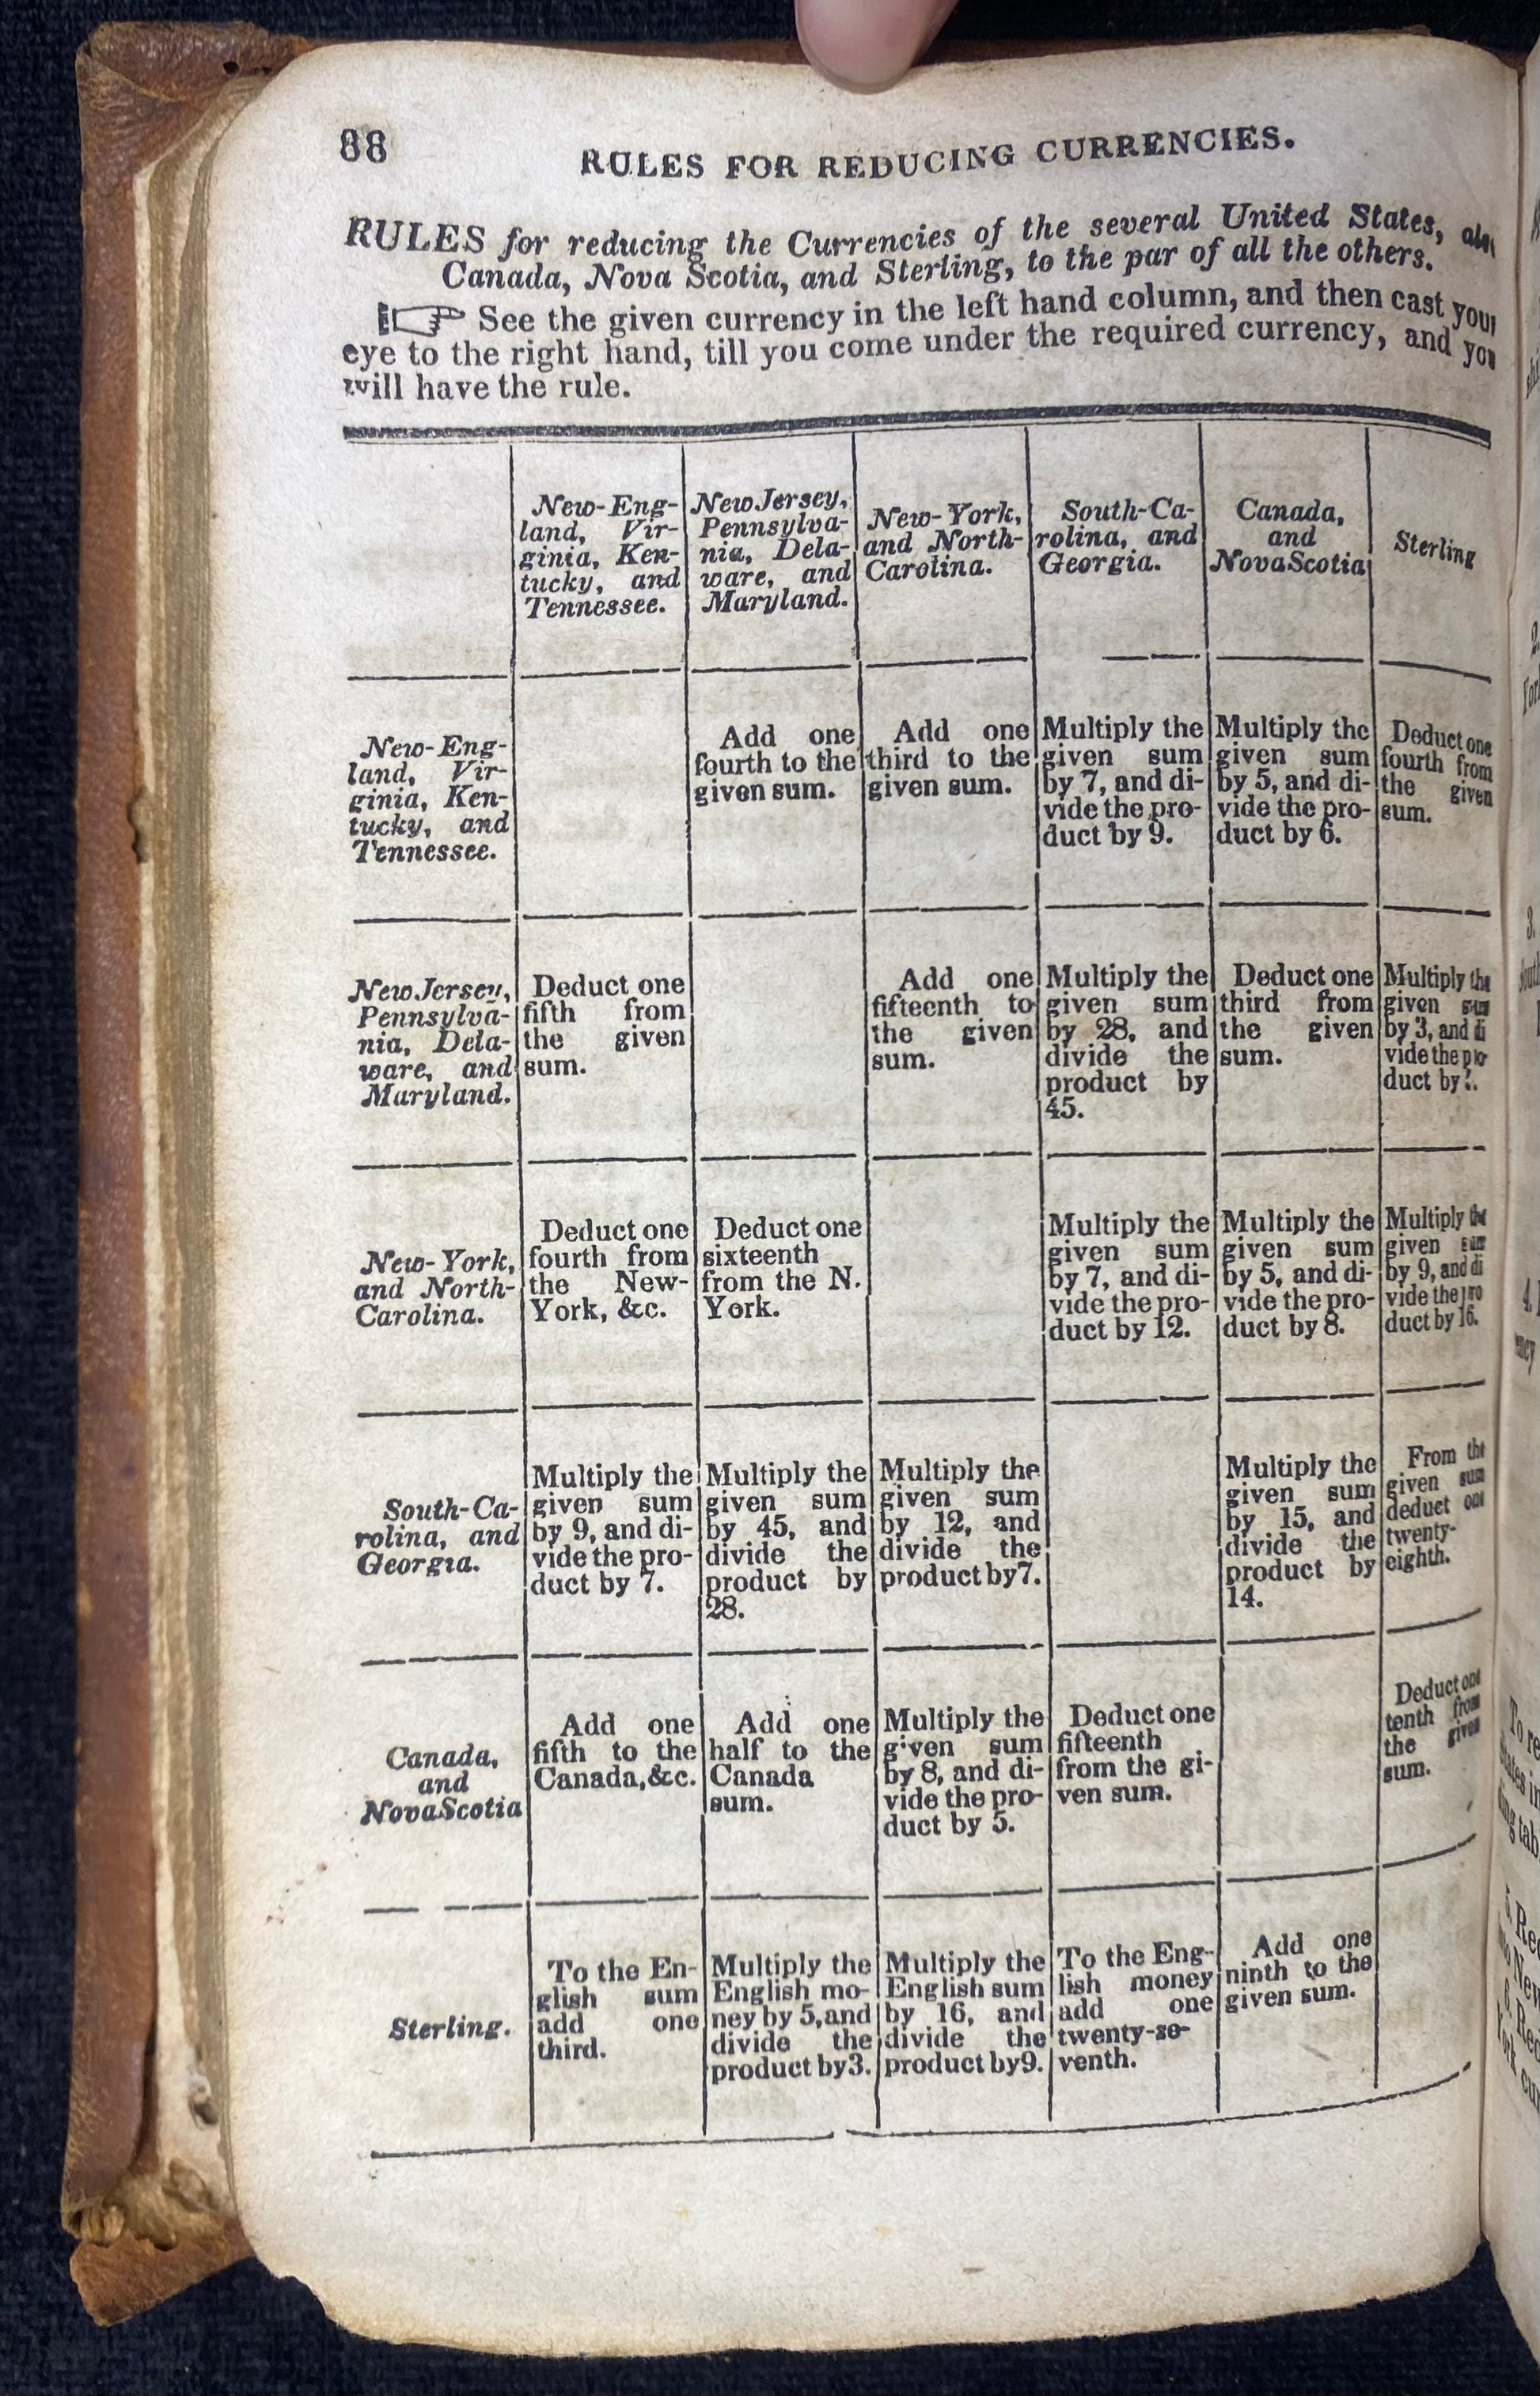 88
RULES FOR REDUCING CURRENCIES.
RULES for reducing the Currencies of the several United States, also
Canada, Nova Scotia, and Sterling, to the par of all the others.
See the given currency in the left hand column, and then cast your
eye to the right hand, till you come under the required currency, and you
will have the rule.
New-Eng-
land, Vir-
ginia, Ken-
tucky, and
Tennessee.
New Jersey,
Pennsylva-
nia, Dela-
ware, and
Maryland.
New-York,
and North-
Carolina.
South-Ca-
rolina, and
Georgia.
Canada,
and
NovaScotia
Sterling
New-Eng-
land, Vir-
ginia, Ken-
tucky, and
Tennessee.
Add one
fourth to the
given sum.
Add one
third to the
given sum.
Multiply the
given sum
by 7, and di-
vide the pro-
duct by 9.
Multiply the
given sum
by 5, and di-
vide the pro-
duct by 6.
Deduct one
fourth from
the given
sum.
New Jersey,
Pennsylva-
nia, Dela-
ware, and
Maryland.
Deduct one
fifth from
the given
sum.
Add one
fifteenth to
the given
sum.
Multiply the
given sum
by 28, and
divide the
product by
45.
Deduct one
third from
the given
sum.
Multiply the
given sum
by 3, and di
vide the pro
duct by
New-York,
and North-
Carolina.
Deduct one
fourth from
the New-
York, &c.
Deduct one
sixteenth
from the N.
York.
Multiply the
given sum
by 7, and di-
vide the pro-
duct by 12.
Multiply the
given sum
by 5, and di-
vide the pro-
duct by 8.
Multiply the
given sum
by 9, and di
vide the pro
duct by 16.
South-Ca-
rolina, and
Georgia.
Multiply the
given sum
by 9, and di-
vide the pro-
duct by 7.
Multiply the
given sum
by 45, and
divide the
product by
28.
Multiply the
given sum
by 12, and
divide the
product by7.
Multiply the
given sum
by 15, and
divide the
product by
14.
From the
given sum
deduct one
twenty-
eighth.
Canada,
and
NovaScotia
Add one
fifth to the
Canada,&c.
Add one
half to the
Canada
sum.
Multiply the
given sum
by 8, and di-
vide the pro-
duct by 5.
Deduct one
fifteenth
from the gi-
ven sum.
Deduct one
tenth from
the given
sum.
Sterling.
To the En-
glish sum
add one
third.
Multiply the
English mo-
ney by 5,and
divide the
product by3.
Multiply the
English sum
by 16, and
divide the
product by9.
To the Eng-
lish money
add one
twenty-se-
venth.
Add one
ninth to the
given sum.